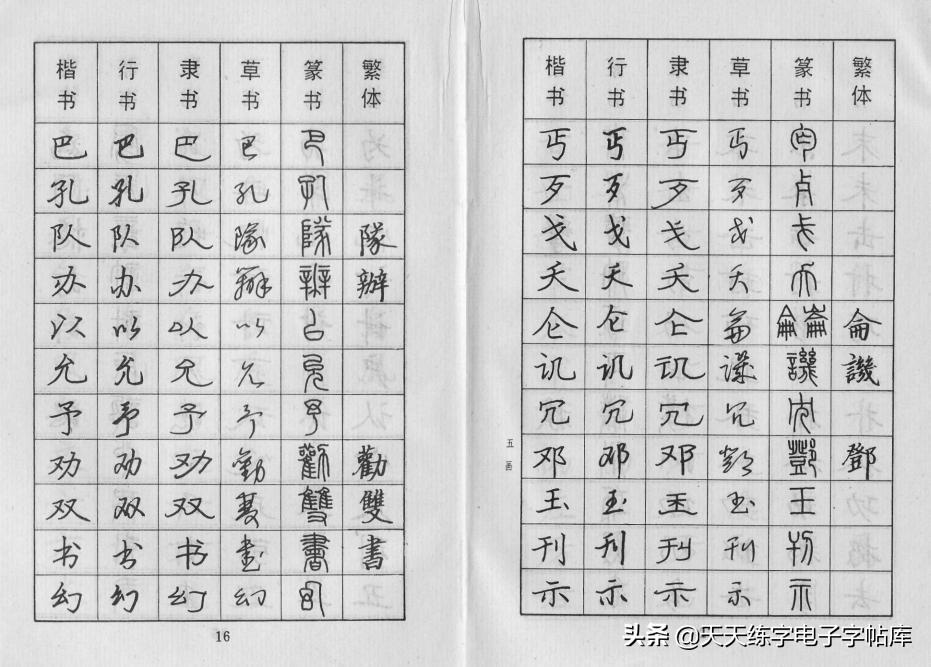 楷书 行书 隶书 草书 篆书 繁体
巴 巴 巴 巴 巴
孔 孔 孔 孔 孔
队 队 队 隊 隊 隊
办 办 办 辦 辦 辦
以 以 以 以 以
允 允 允 允 允
予 予 予 予 予
劝 劝 劝 勸 勸 勸
双 双 双 雙 雙 雙
书 书 书 書 書 書
幻 幻 幻 幻 幻
16
楷书 行书 隶书 草书 篆书 繁体
丐 丐 丐 丐 丐
歹 歹 歹 歹 歹
戈 戈 戈 戈 戈
夭 夭 夭 夭 夭
仑 仑 仑 侖 侖崙 侖
讥 讥 讥 譏 譏 譏
冗 冗 冗 冗 冗
邓 邓 邓 鄧 鄧 鄧
五画
玉 玉 玉 玉 玉
刊 刊 刊 刊 刊
示 示 示 示 示
头条 @天天练字电子字帖库